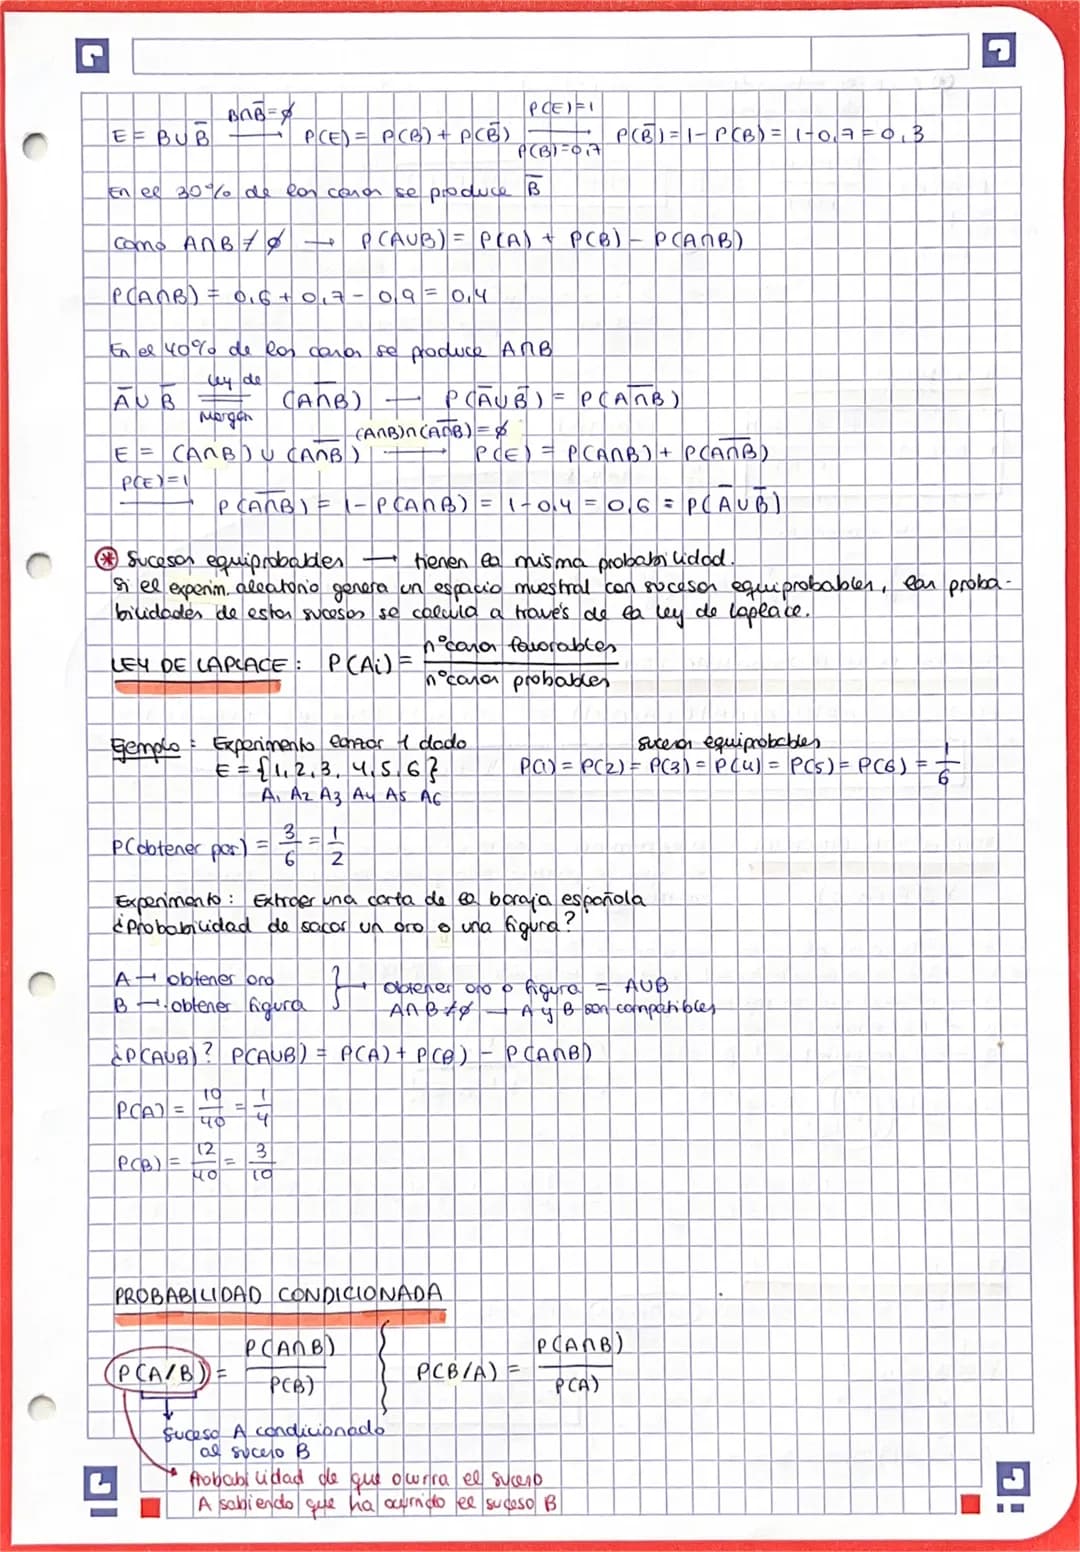 E = B∪B̅ →(B∩B̅=∅) P(E) = P(B) + P(B̅) →(P(E)=1, P(B)=0,7) P(B̅) = 1 - P(B) = 1 - 0,7 = 0,3
En el 30% de los casos se produce B̅
Como A∩B ≠ ∅ → P(A∪B) = P(A) + P(B) - P(A∩B)
P(A∩B) = 0,6 + 0,7 - 0,9 = 0,4
En el 40% de los casos se produce A∩B
A̅∪B̅ =(ley de Morgan) (A̅∩̅B̅) → P(A̅∪B̅) = P(A̅∩̅B̅)
E = (A∩B) ∪ (A̅∩̅B̅) →((A∩B)∩(A̅∩̅B̅)=∅) P(E) = P(A∩B) + P(A̅∩̅B̅)
→(P(E)=1) P(A̅∩̅B̅) = 1 - P(A∩B) = 1 - 0,4 = 0,6 = P(A̅∪B̅)
* Sucesos equiprobables → tienen la misma probabilidad.
Si el experim. aleatorio genera un espacio muestral con sucesos equiprobables, las proba-
bilidades de estos sucesos se calcula a través de la ley de Laplace.
LEY DE LAPLACE: P(Ai) = nº casos favorables / nº casos probables
Ejemplo: Experimento lanzar 1 dado
E = {1, 2, 3, 4, 5, 6}
A1 A2 A3 A4 A5 A6
sucesos equiprobables
P(1) = P(2) = P(3) = P(4) = P(5) = P(6) = 1/6
P(obtener par) = 3/6 = 1/2
Experimento: Extraer una carta de la baraja española
¿Probabilidad de sacar un oro o una figura?
A → obtener oro
B → obtener figura
} → obtener oro o figura = A∪B
A∩B ≠ ∅ → A y B son compatibles
¿P(A∪B)? P(A∪B) = P(A) + P(B) - P(A∩B)
P(A) = 10/40 = 1/4
P(B) = 12/40 = 3/10
PROBABILIDAD CONDICIONADA
P(A/B) = P(A∩B)/P(B) { P(B/A) = P(A∩B)/P(A)
Suceso A condicionado
al suceso B
Probabilidad de que ocurra el suceso
A sabiendo que ha ocurrido el suceso B